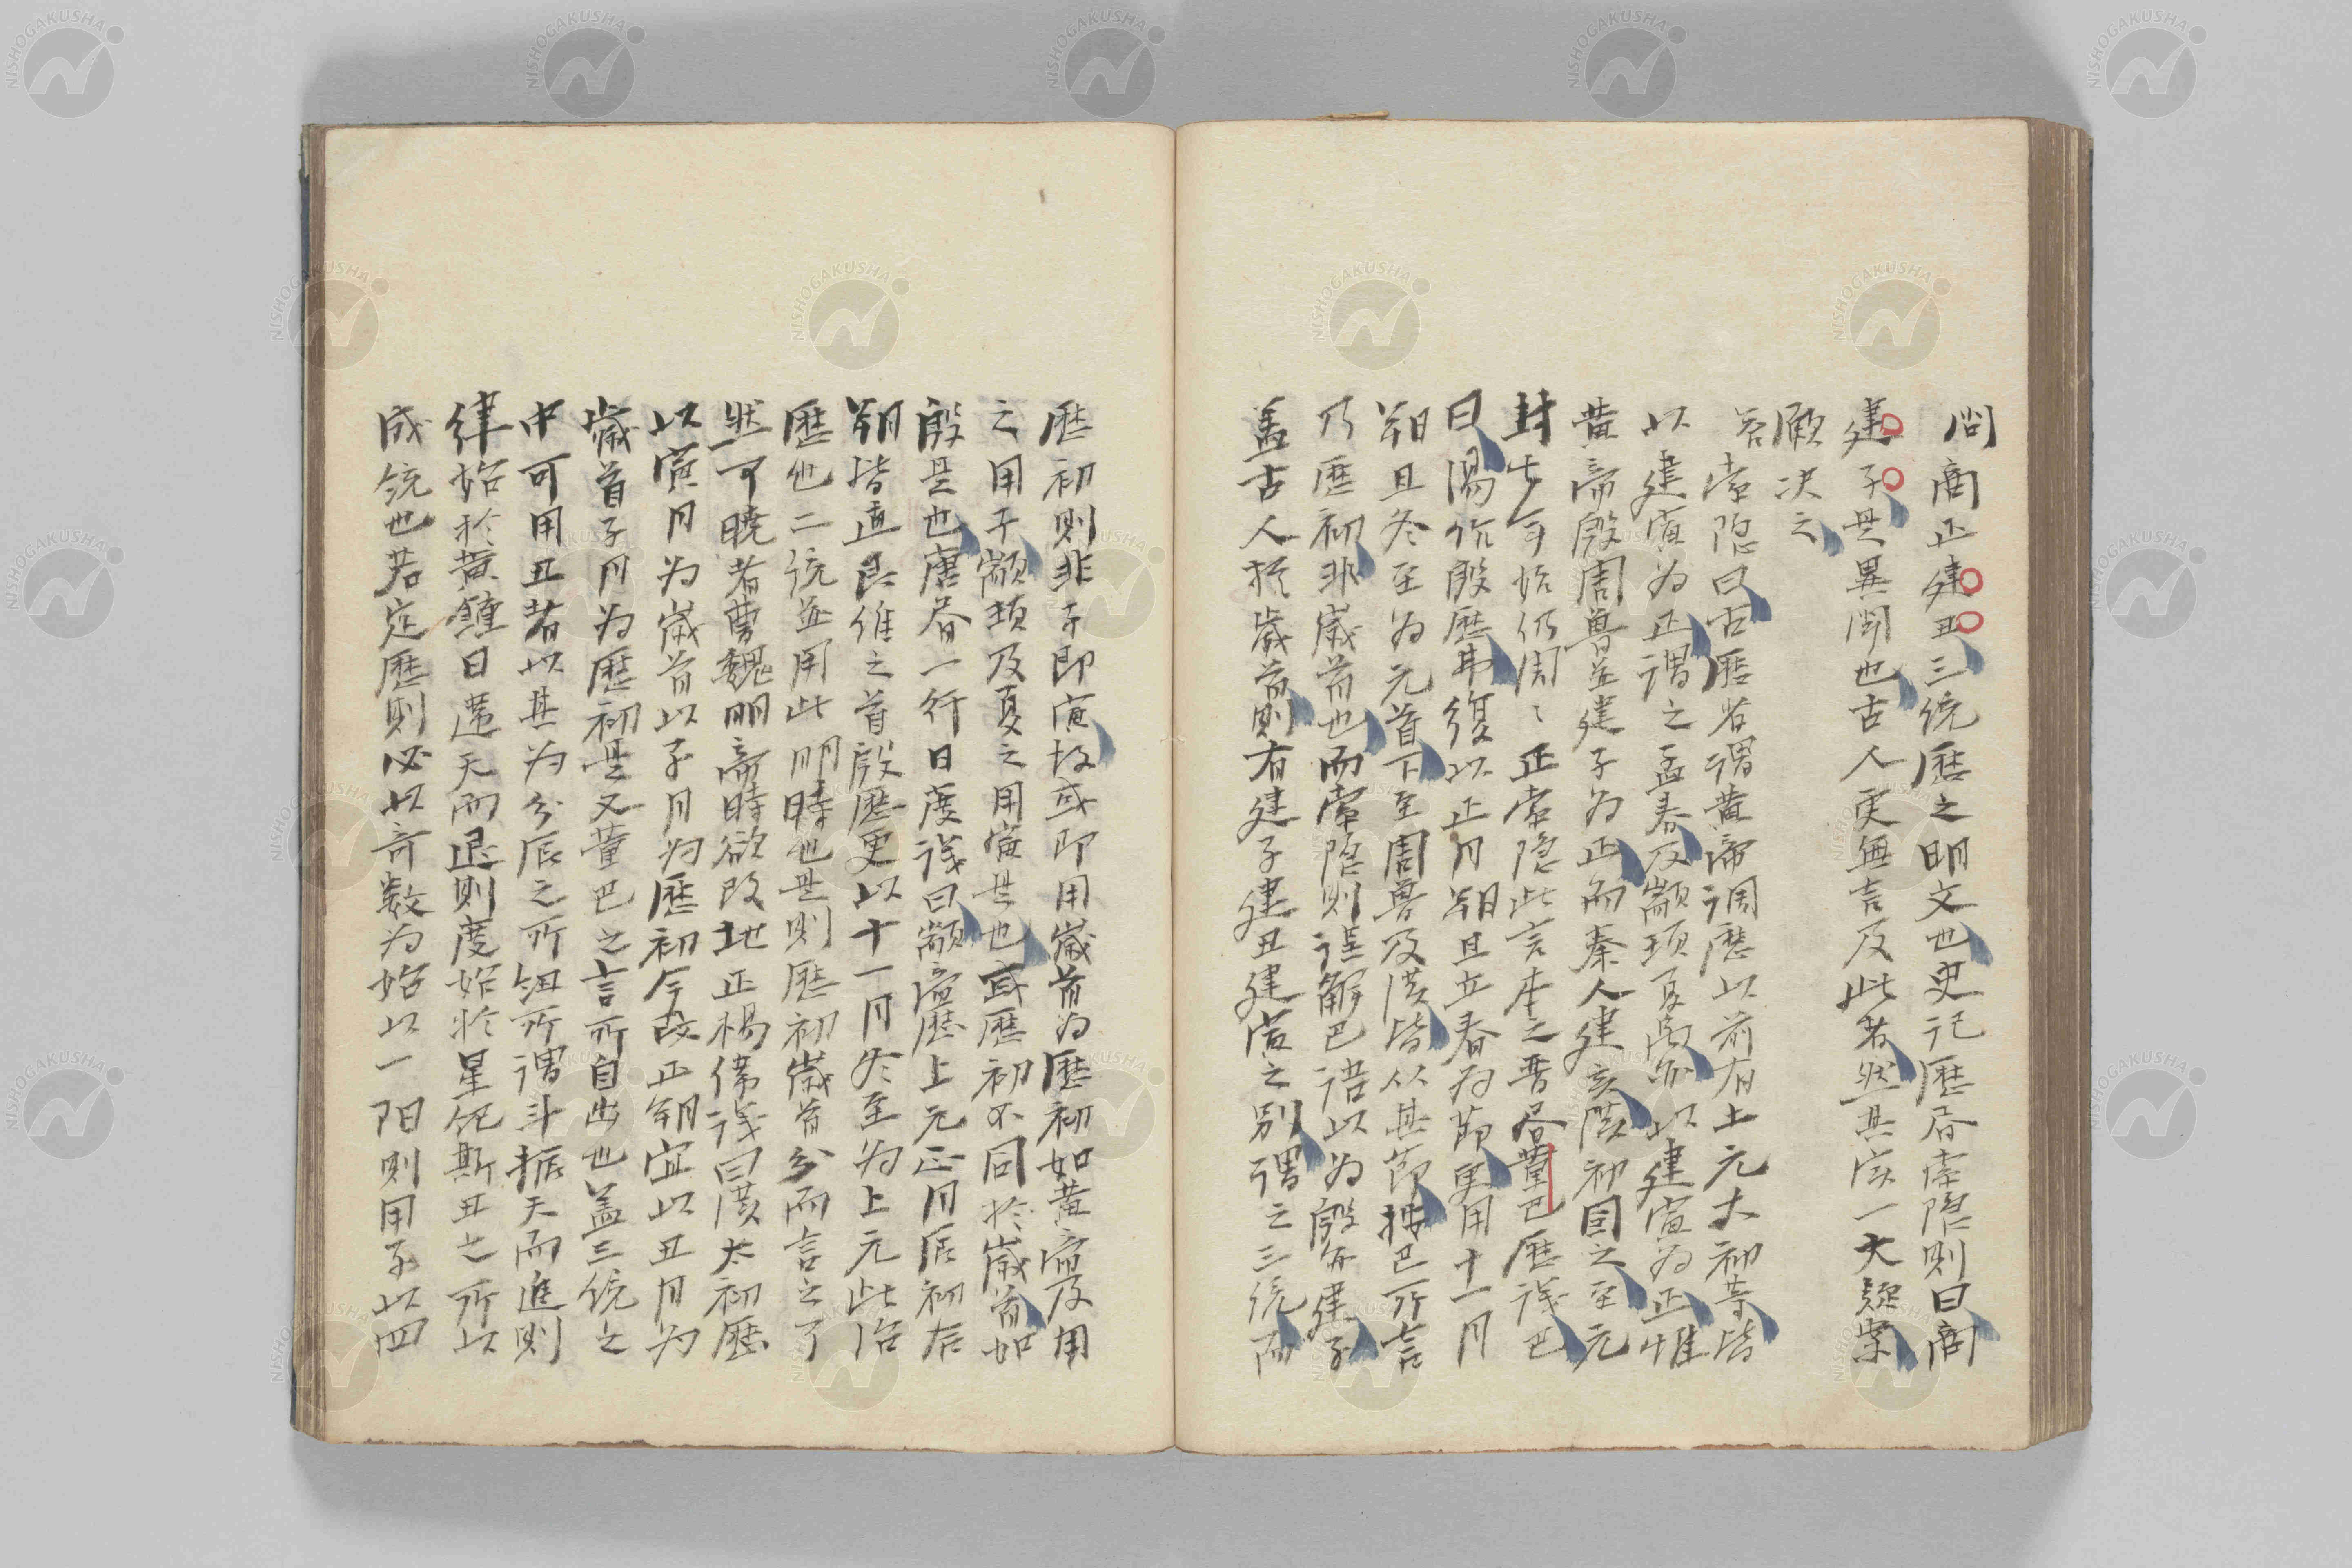 問商正建丑三統歷之明文也史記歷居索隱則曰商
建子是異聞也古人更無言及此者然其實一大疑案
願決之
答索隱曰古歷者謂黃帝調歷以前有上元太初等皆
以建寅為正謂之孟春及顓頊夏禹亦以建寅為正惟
黃帝殷周魯並建子為正而秦人建亥漢初因之至元
封七年始仍周〻正索隱此言本之晉居董巴歷議巴
曰湯作殷歷弗復以正月朔旦立春為節更用十一月
朔旦冬至為元首下至周魯及漢皆從其節捜巴所言
乃歷初非歲首也而索隱則誤解巴語以為殷亦建子
蓋古人於歲首則有建子建丑建寅之別謂之三統而
歷初則非子即寅故或即用歲首為歷初如黃帝及周
之用子顓頊及夏之用寅是也或歷初不同於歲首如
殷是也唐居一行日度議曰顓帝歷上元正月辰初合
朔皆直艮維之首殷歷更以十一月冬至為上元此治
歷也二統並用此明時也是則歷初歲首分而言之了
然可曉者曹魏明帝時欲改地正楊偉議曰漢太初歷
以寅月為歲首以子月為歷初今改正朔宜以丑月為
歲首子月為歷初是又董巴之言所自出也蓋三統之
中可用丑者以其為分辰之所紐所謂斗振天而進則
律始於黃鐘日遺天而退則度始於星紀斯丑之所以
成統也若定歷則必以奇數為始以一陽則用子以四